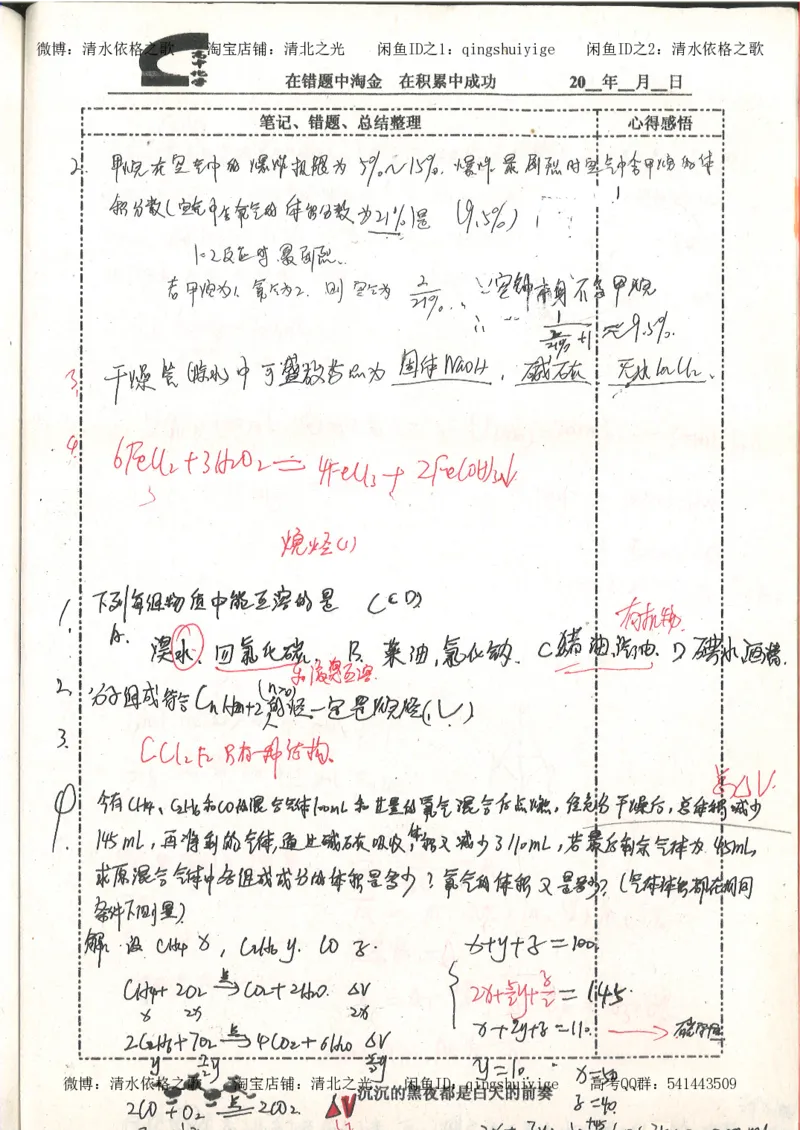 微博：清水依格之歌 淘宝店铺：清北之光 闲鱼ID之1：qingshuiyige 闲鱼ID之2：清水依格之歌
高中化学
在错题中淘金 在积累中成功 20__年__月__日
笔记、错题、总结整理 心得感悟
2. 甲烷在空气中的爆炸极限为5%~15%. 爆炸最剧烈时空气中含甲烷的体
积分数(空气中含氧气的体积分数为21%)是 (9.5%)
1:2反应时最剧烈.
若甲烷为1. 氧气为2. 则空气为 2/21%. ∵空气本身不含甲烷
∴ 1/(2/21%+1) ≈9.5%.
3. 干燥管(除水)中可盛放药品为 固体NaOH、碱石灰 无水CaCl2、
4. 6FeCl2+3H2O2=4FeCl3+2Fe(OH)3↓
烷烃(1)
1. 下列每组物质中能互溶的是 (CD)
A. 溴水、四氯化碳 B. 菜油,氯化钠. C 猪油,汽油. D 碘水 酒精.
有机物.
2. 分子组成符合CnH2n+2(n>0)的烃一定是烷烃(√)
3. CCl2F2只有一种结构.
4. 今有CH4、C2H6和CO的混合气体100mL和过量的氧气混合后点燃,经充分干燥后,总体积减少
145mL,再将剩的气体,通过碱石灰吸收,体积又减少110mL,若最后剩余气体为45mL,
求原混合气体中各组成成分的体积是多少?氧气的体积又是多少?(气体体积都在相同
条件下测量)
解: 设CH4 x, C2H6 y. CO z. x+y+z=100.
CH4+2O2 点→ CO2+2H2O. ΔV 2x+5/2y+z/2=145.
x 2x 2x x+2y+z=110.
2C2H6+7O2 点→ 4CO2+6H2O ΔV
y 7/2y 5/2y y=10. x=50
微博：清水依格之歌 淘宝店铺：清北之光 闲鱼ID：qingshuiyige 高考QQ群：541443509
沉沉的黑夜都是白天的前奏
2CO+O2 点 2CO2 ΔV z=40.